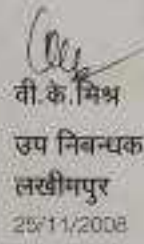 वी.के.मिश्र
उप निबन्धक
लखीमपुर
25/11/2008